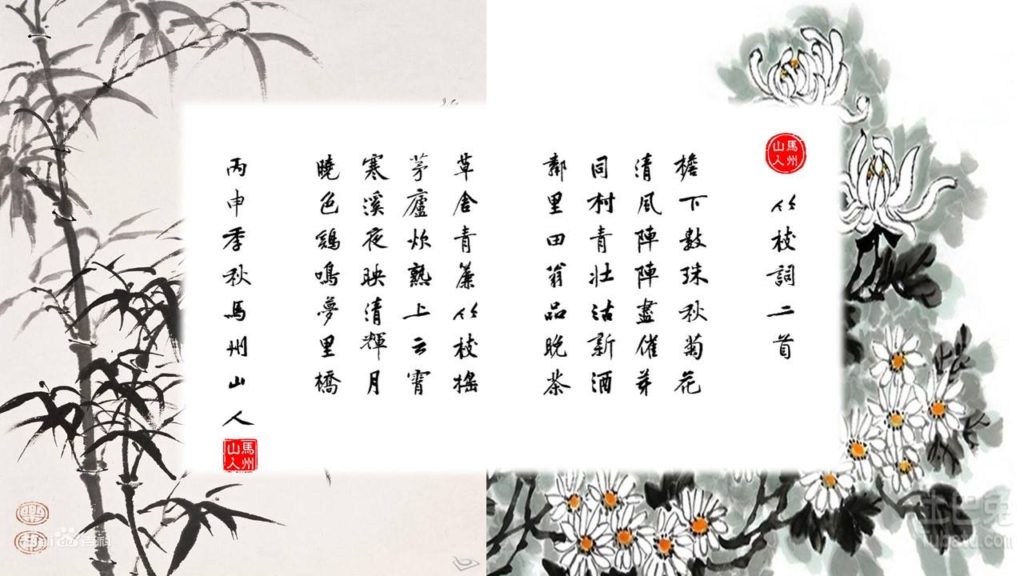 馬州山人
竹枝詞二首
檐下數珠秋菊花
清風陣陣盡催芽
同村青壯沽新酒
鄰里田翁品晚茶
草舍青簾竹枝搖
茅廬炊熟上云霄
寒溪夜映清輝月
曉色鷄鳴夢里橋
丙申季秋馬州山人
馬州山人
土巴兔